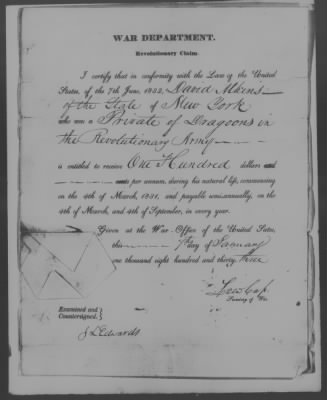 WAR DEPARTMENT.
Revolutionary Claim.
I certify that in conformity with the Law of the United
States, of the 7th June, 1832, David Akins
of the State of New York
who was a Private of Dragoons in
the Revolutionary Army
is entitled to receive One Hundred dollars and
cents per annum, during his natural life, commencing
on the 4th of March, 1831, and payable semi-annually, on the
4th of March, and 4th of September, in every year.
Given at the War-Office of the United States,
this 7th day of January
one thousand eight hundred and thirty three
Lew Cass
Secretary of War.
Examined and
Countersigned.
J L Edwards